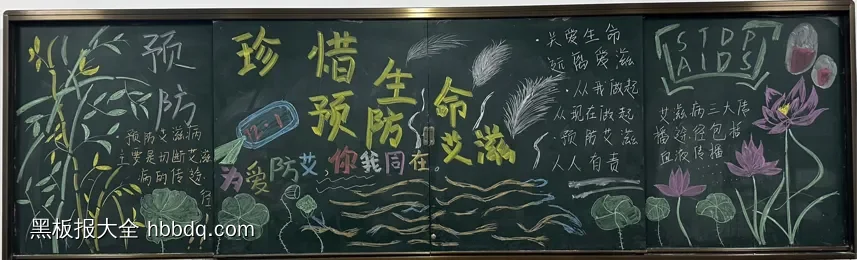 预
防
·预防艾滋病
主要是切断艾滋
病的传途
径
珍惜生命
预防艾滋
12-1
为爱防艾,你我同在。
·关爱生命
远离爱滋
·从我做起
从现在做起
·预防艾滋
人人有责
STDP
AIDS
艾滋病三大传
播途径包括
血液传播
黑板报大全 hbbdq.com